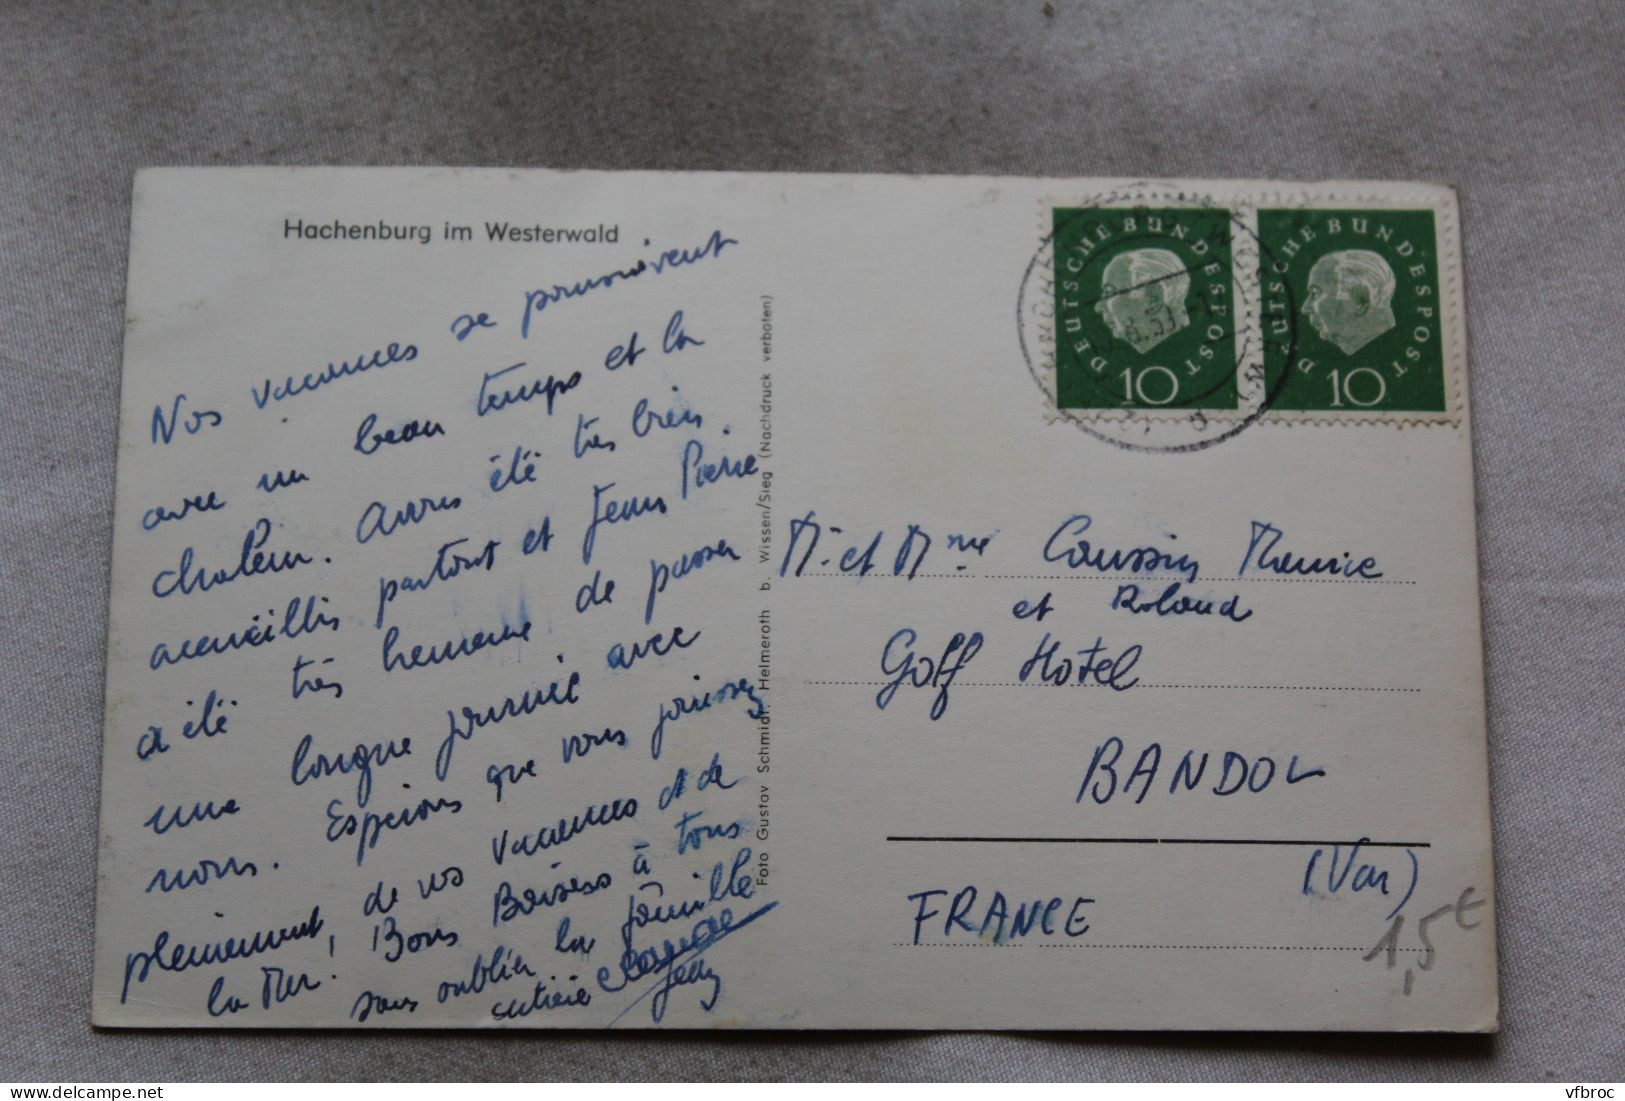 Hachenburg im Westerwald
Nos vacances se poursuivent
avec un beau temps et la
chaleur. Avons été très bien
accueillis partout et Jean Pierre
a été très heureux de passer
une longue journée avec
nous. Espérons que vous jouissez
pleinement, de vos vacances et de
la Mer! Bons Baisers à tous
sans oublier la famille
entière
Jean
Foto Gustav Schmidt, Helmeroth b. Wissen/Sieg (Nachdruck verboten)
DEUTSCHE BUNDESPOST
10
DEUTSCHE BUNDESPOST
10
M. et Mme Coussin Maurice
et Roland
Golf Hotel
BANDOL
(Var)
FRANCE
1,5€
delcampe.net
vfbroc